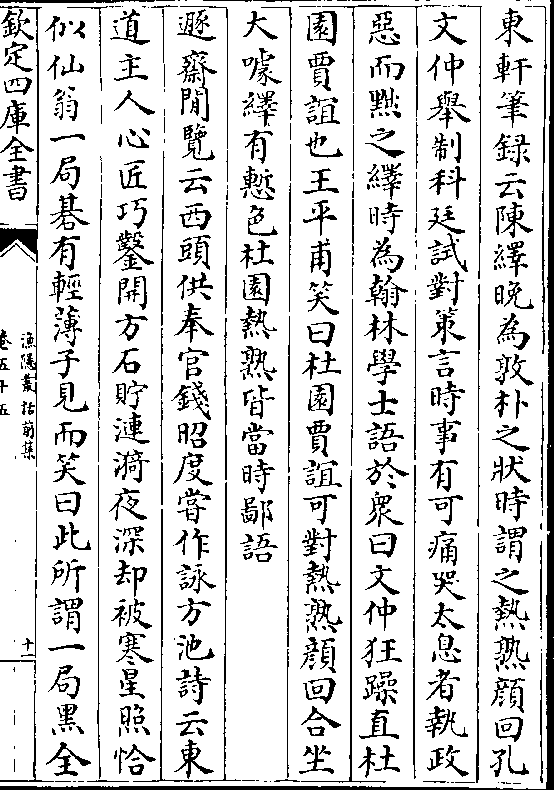 東軒筆録云陳繹晩為敦朴之狀時謂之熱熟顔回孔
文仲舉制科廷試對策言時事有可痛哭太息者執政
惡而黜之繹時為翰林學士語於衆曰文仲狂躁直杜
園賈誼也王平甫笑曰杜園賈誼可對熱熟顔回合坐
大噱繹有慙色杜園熱熟皆當時鄙語
遯齋閒覽云西頭供奉官錢昭度嘗作詠方池詩云東
道主人心匠巧鑿開方石貯漣漪夜深却被寒星照恰
似仙翁一局碁有輕薄子見而笑曰此所謂一局黑全
欽定四庫全書
漁隠叢話前集
卷五十五
十一